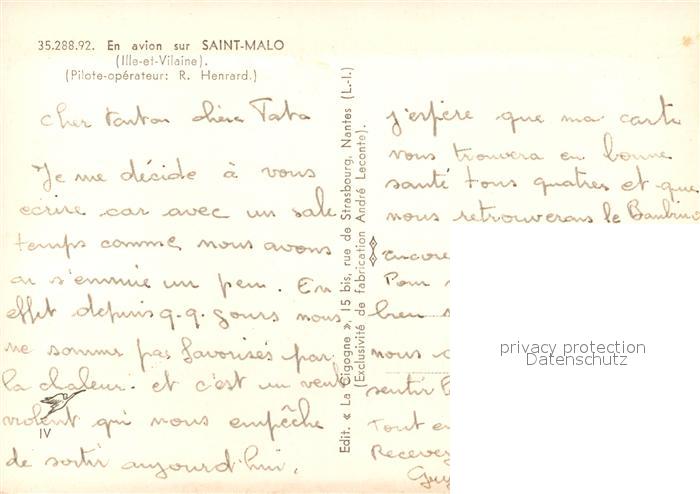 35.288.92. En avion sur SAINT-MALO
(Ille-et-Vilaine).
(Pilote-opérateur: R. Henrard.)
cher tonton chère Tata
Je me décide à vous
ecrire car avec un sale
temps comme nous avons
on s'ennuie un peu. En
effet depuis q.q. jours nous
ne somme pas favorisés par
la chaleur. et c'est un vent
violent qui nous empêche
de sortir aujourd'hui.
IV
Edit. « La Cigogne », 15 bis, rue de Strasbourg, Nantes (L.-I.)
(Exclusivité de fabrication André Leconte).
j'espère que ma carte
vous trouvera en bonne
santé tous quatres et que
nous retrouverons le Bambino
encore
Pour
bien
nous
sentir
Tout en
Recevez
Guy
privacy protection
Datenschutz